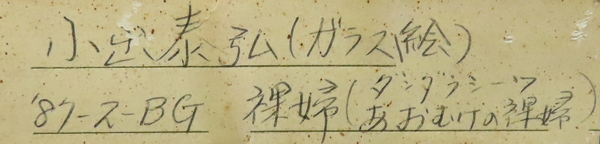 小出泰弘(ガラス絵)
'87-ス-BG 裸婦(タンダラシーツ
あおむけの裸婦)